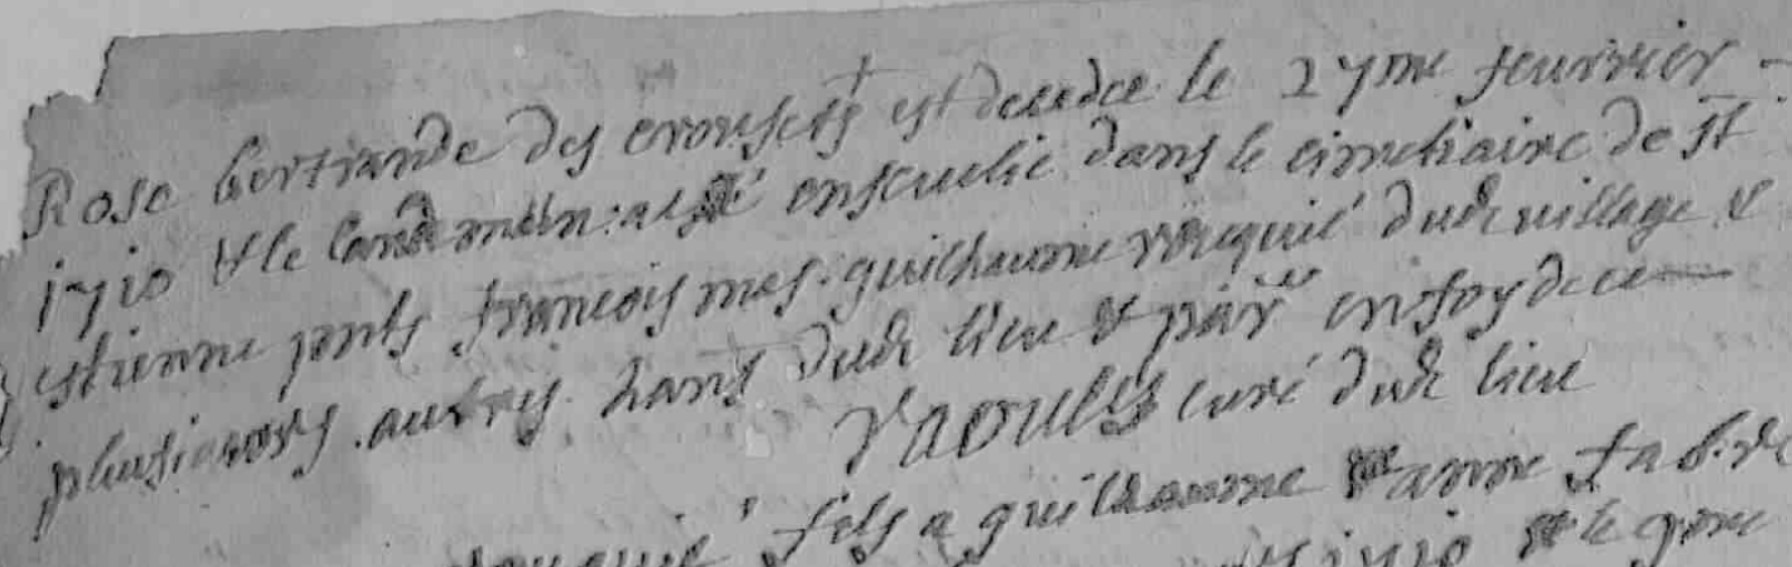 Rose bertrande des crousets est decedee le 27me feuvrier
1710 & le landemain a esté enseuelie dans le cimetiaire de st
estienne pnts francois mas. guilhaume rouquié dudt village &
plusieurs autres hans dudt lieu & parr en foy de ce
Vaoulés curé dudt lieu
fils a guilhaume anne fab.
1710 & le